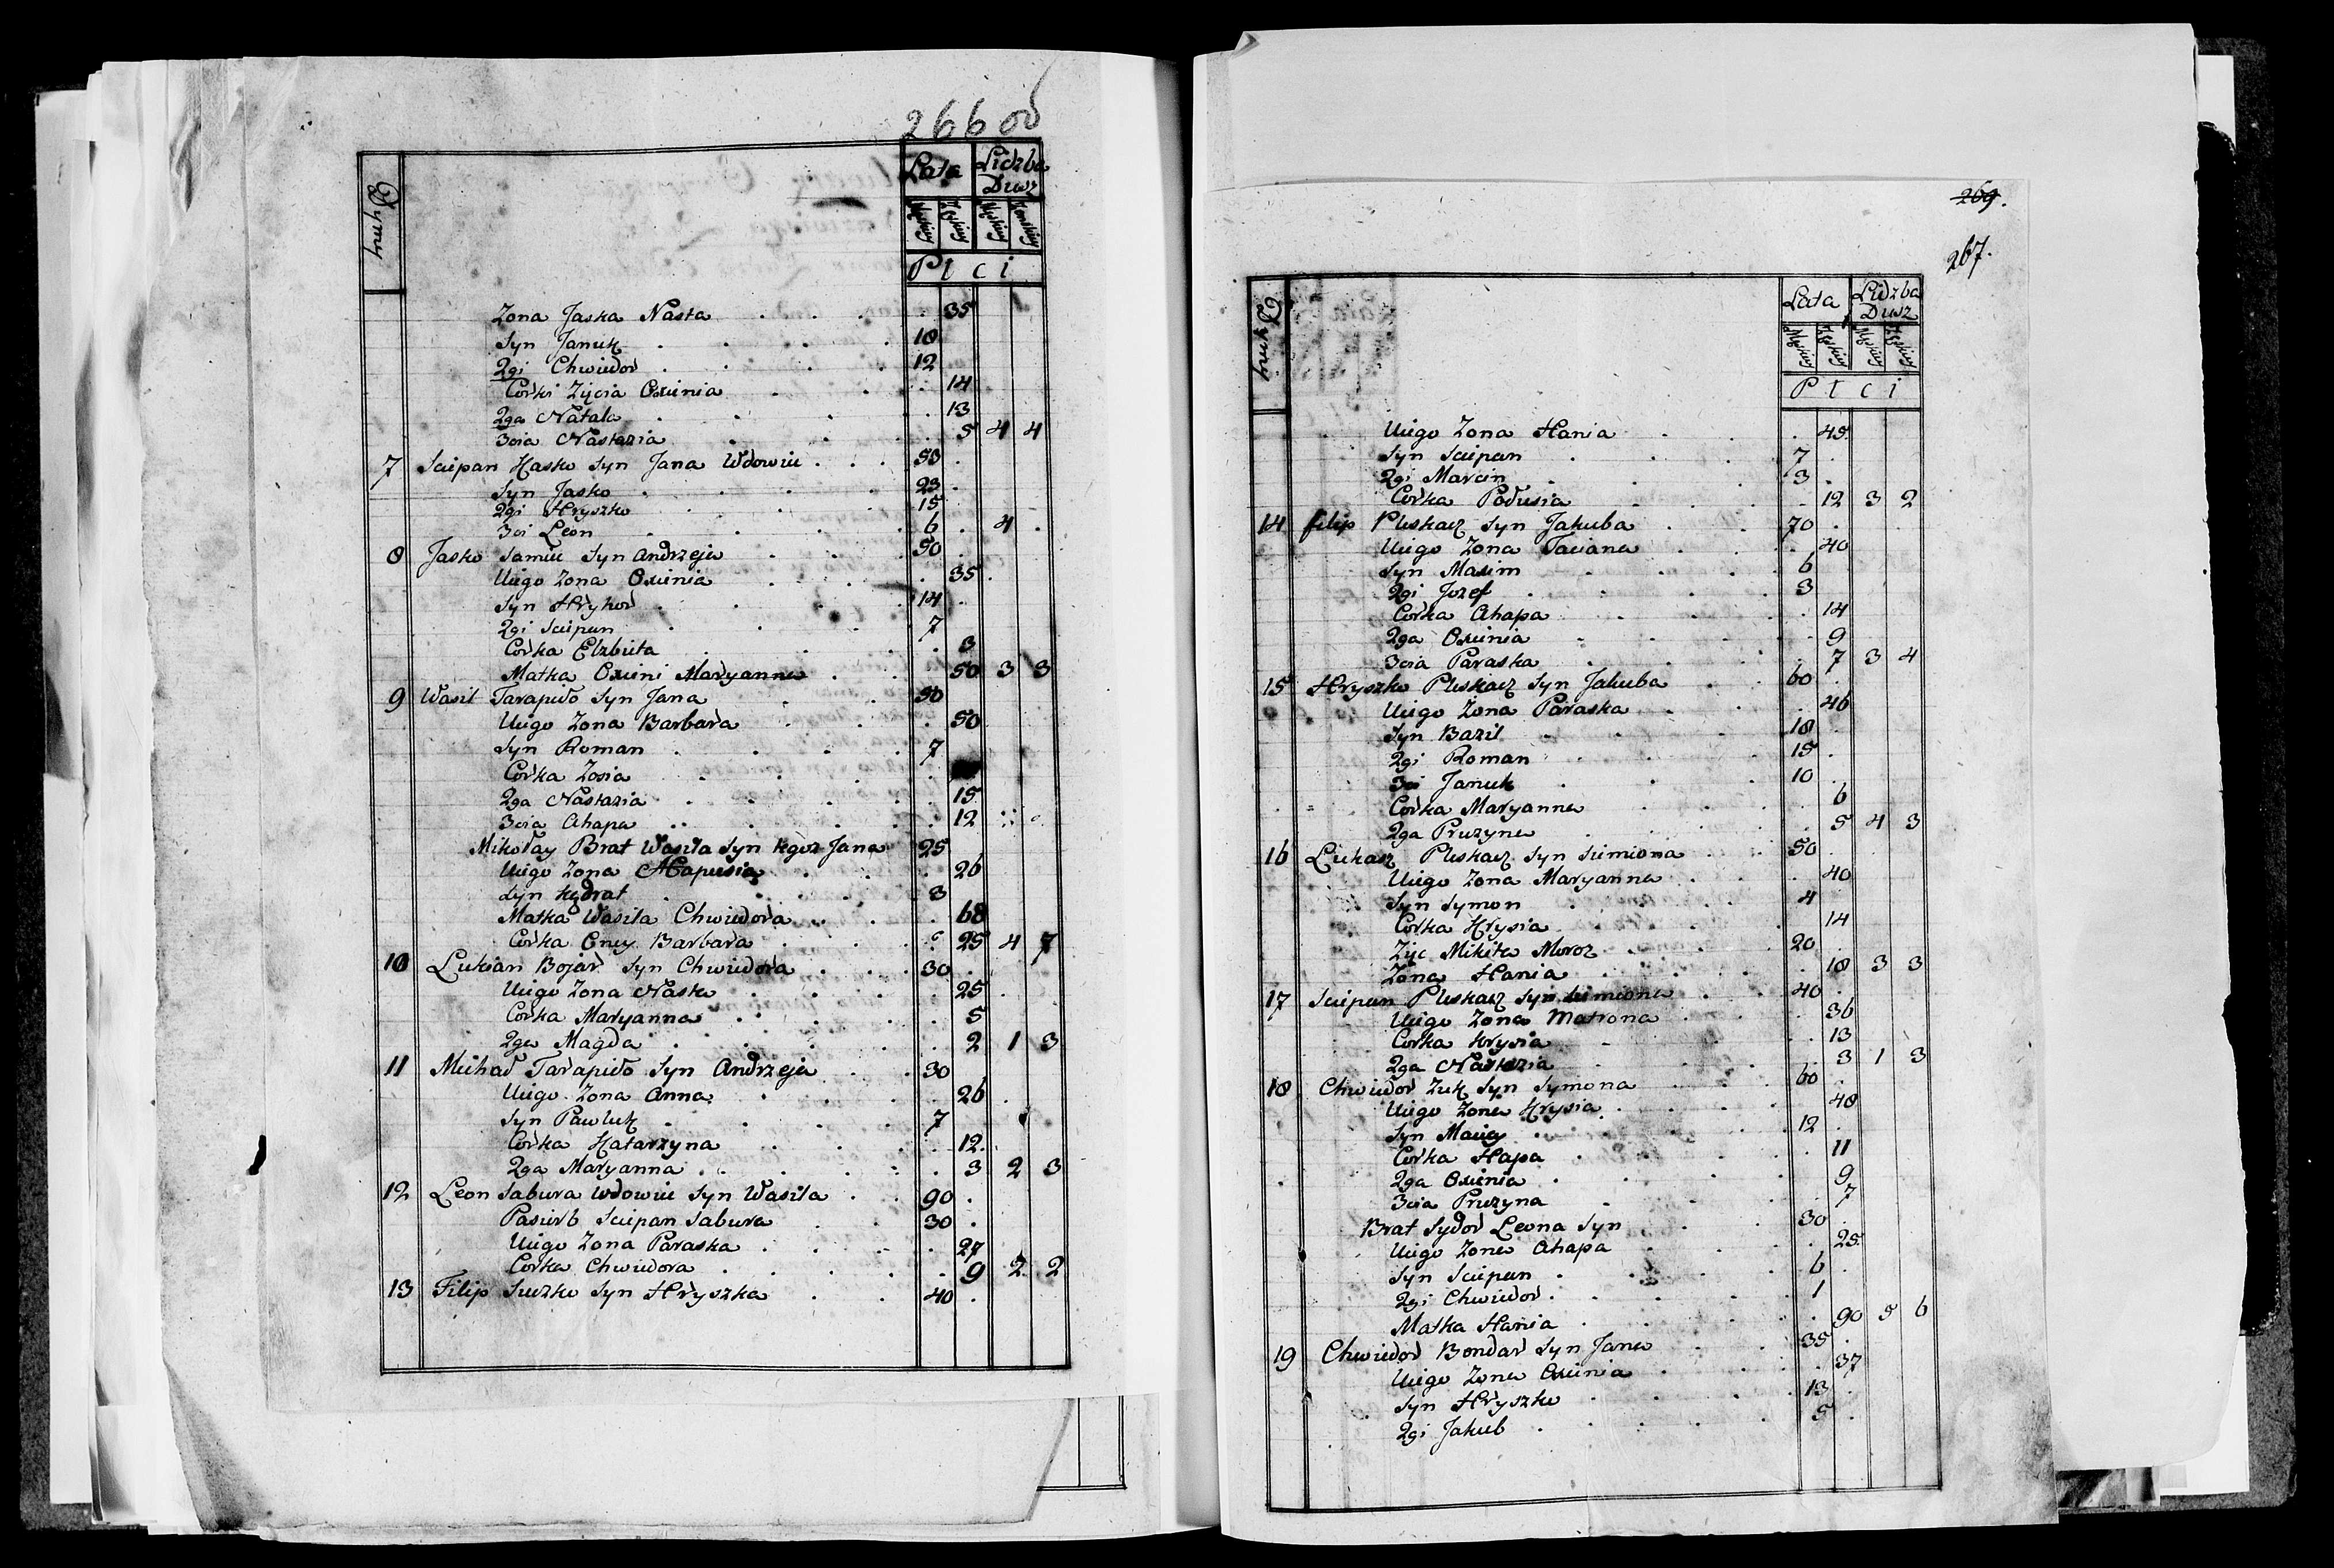 266 об
Dymy
Lata Liczba Dusz
Męskiey Żeńskiey Męskiey Żeńskiey
Płci
Zona Jaska Nasta . . . 35
Syn Januk . . . 18
2gi Chwiedor . . . 12
Corki Zięcia Oxienia . . . 14
2ga Natala . . . 13
3cia Nastazia . . . 5 4 4
7 Sciepan Hasko Syn Jana Wdowiec . . . 50
Syn Jasko . . . 23
2gi Hryszko . . . 15
3ci Leon . . . 6 . 4 .
8 Jasko Samiec Syn Andrzeja . . . 50
Uiego Zona Oxienia . . . 35
Syn Hryhor . . . 14
2gi Sciepan . . . 7
Corka Elzbieta . . . 3
Matka Oxieni Maryanna . . . 50 3 3
9 Wasil Tarapido Syn Jana . . . 50
Uiego Zona Barbara . . . 50
Syn Roman . . . 7
Corka Zosia . . .
2ga Nastazia . . . 15
3cia Ahapa . . . 12
Mikołay Brat Wasila Syn tegoz Jana 25
Uiego Zona Hapusia . . . 26
Syn Kądrat . . . 3
Matka Wasila Chwiedora . . . 68
Corka Oney Barbara . . . 25 4 7
10 Lukian Bojar Syn Chwiedora . . . 30
Uiego Zona Nasta . . . 25
Corka Maryanna . . . 5
2ga Magda . . . 2 1 3
11 Michał Tarapido Syn Andrzeja . . . 30
Uiego Zona Anna . . . 26
Syn Pawluk . . . 7
Corka Katarzyna . . . 12
2ga Maryanna . . . 3 2 3
12 Leon Sabura Wdowiec Syn Wasila . . . 90
Pasierb Sciepan Sabura . . . 30
Uiego Zona Paraska . . . 27
Corka Chwiedora . . . 9 2 2
13 Filip Suszko Syn Hryszka . . . 40
269.
267.
Dymy
Lata Liczba Dusz
Męskiey Żeńskiey Męskiey Żeńskiey
Płci
Uiego Zona Hania . . . 45
Syn Sciepan . . . 7
2gi Marcin . . . 3
Corka Podusia . . . 12 3 2
14 Filip Pleskacz Syn Jakuba . . . 70
Uiego Zona Taciana . . . 40
Syn Maxim . . . 6
2gi Jozef . . . 3
Corka Ahapa . . . 14
2ga Oxienia . . . 9
3cia Paraska . . . 7 3 4
15 Hryszko Pleskacz Syn Jakuba . . . 60
Uiego Zona Paraska . . . 46
Syn Bazil . . . 18
2gi Roman . . . 15
3ci Januk . . . 10
Corka Maryanna . . . 6
2ga Pruzyna . . . 5 4 3
16 Lukasz Pleskacz Syn Siemiona . . . 50
Uiego Zona Maryanna . . . 40
Syn Symon . . . 4
Corka Hrysia . . . 14
Zięc Mikita Moroz . . . 20
Zona Hania . . . 18 3 3
17 Sciepan Pleskacz Syn Siemiona . . . 40
Uiego Zona Matrona . . . 36
Corka Krysia . . . 13
2ga Nastazia . . . 3 1 3
18 Chwiedor Zuk Syn Symona . . . 60
Uiego Zona Hrysia . . . 48
Syn Maciey . . . 12
Corka Hapa . . . 11
2ga Oxienia . . . 9
3cia Pruzyna . . . 7
Brat Sydor Leona Syn . . . 30
Uiego Zona Ahapa . . . 25
Syn Sciepan . . . 6
2gi Chwiedor . . . 1
Matka Hania . . . 90 5 6
19 Chwiedor Bondar Syn Jana . . . 35
Uiego Zona Oxienia . . . 37
Syn Hryszko . . . 13
2gi Jakub . . . 5